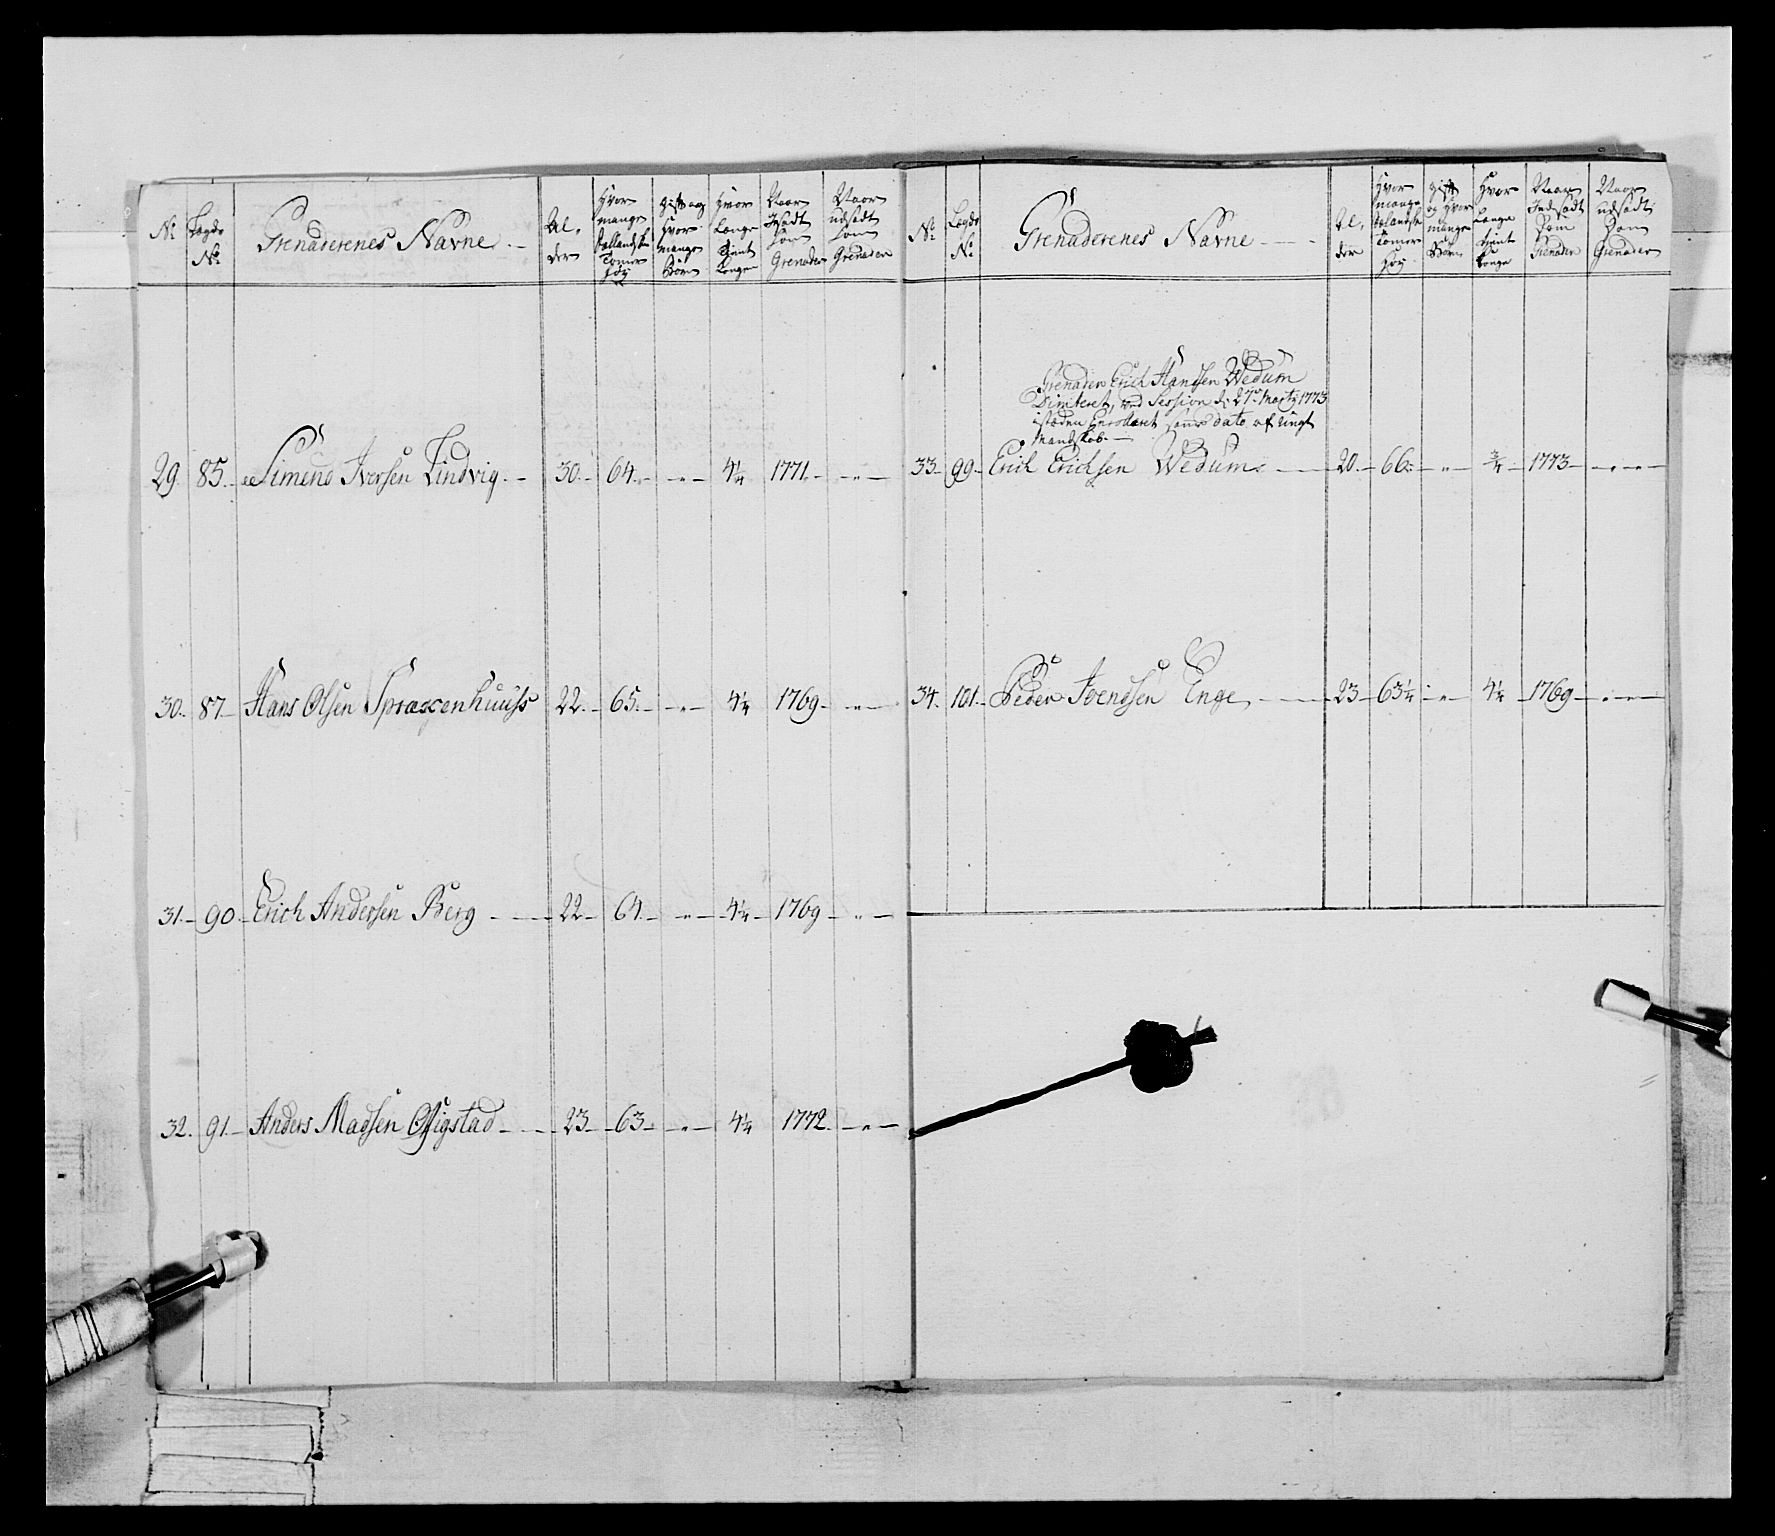 No Lægds No Grenaderenes Navne Alder Hvor mange Hollandske Tomer Høy gift og Hvor mange Børn Hvor Længe Tient Kongen Naar Indsadt som Grenader Naar udsadt som Grenader
29. 85. Simen Iversen Lindvig. — 30. — 64. — „ — 4 1/4 1771. — „ —
30. 87. Hans Olsen 22. — 65. — „ — 4 1/4 1769. — „ —
31. — 90. Erich Andersen Berg — 22 — 64. — „ — 4 1/4 — 1769 — „ —
32. 91. — Anders Madsen — 23 — 63 — „ — 4 1/4 1772. — „ —
No Lægds No Grenaderenes Navne — Alder Hvor mange Hollandske Tomer Høy gift og Hvor mange Børn Hvor Længe tient Konge Naar Indsadt som Grenader Naar udsadt som Grenader
Grenader Erich Hansen Wedum
Dimiteret, ved Session d: 27de Marty 1773
istæden Enrolleret samme dato af ungt
Mandskab. —
33. 99. Erich Erichsen Wedum. — 20. — 66. — „ — 3/4 — 1773 — „ —
34. 101. — Peder Svendsen Enge, — 23 — 63 1/4 — „ — 4 1/4 — 1769 — „ —